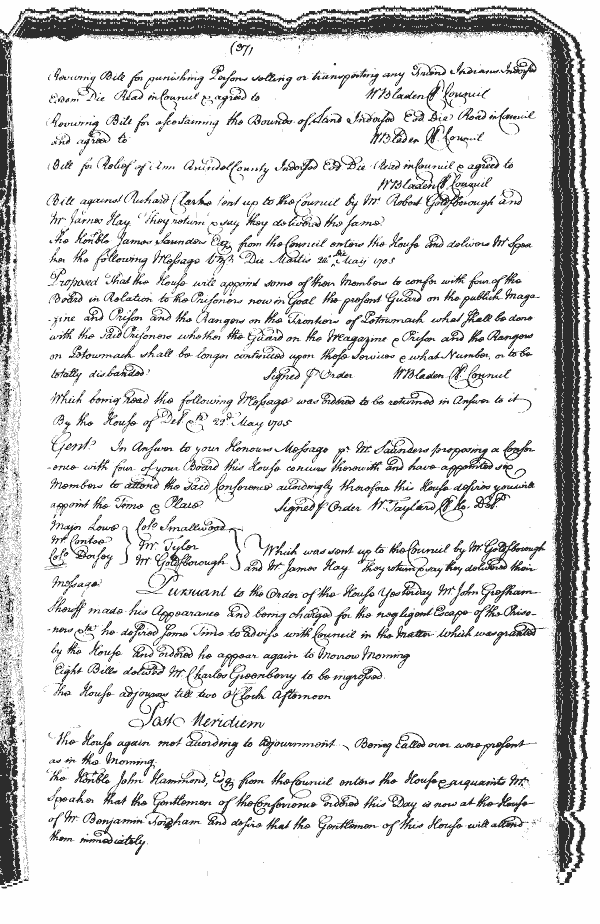 (37)
Reviving Bill for punishing Persons selling or transporting any Friend Indians Indorsed
Eodem Die Read in Council & agreed to W Bladen Cl Council
Reviving Bill for ascertaining the Bounds of Land Indorsed Eod Die Read in Council
and agreed to W Bladen Cl Council
Bill for Relief of Ann Arundel County Indorsed Eod Die Read in Council & agreed to
W Bladen Cl Council
Bill against Richard Clarke sent up to the Council by Mr Robert Goldsborough and
Mr James Hay They return & say they delivered the same
The Honble James Saunders Esqr from the Council enters the House and delivers Mr Spea
ker the following Message Die Martis 22d May 1705
Proposed that the House will appoint some of their Members to confer with four of the
Board in Relation to the Prisoners now in Goal the present Guard on the publick Maga-
zine and Prison and the Rangers on the Frontiers of Potowmack what shall be done
with the said Prisoners whether the Guard on the Magazine & Prison and the Rangers
on Potowmack shall be longer continued upon those Services & what Number, or to be
totally disbanded Signed p Order W Bladen Cl Council
Which being read the following Message was ordered to be returned in Answer to it
By the House of Del &ca 22d May 1705
Gent. In Answer to your Honours Message pr Mr Saunders proposing a Confer-
ence with four of your Board this House concurs therewith and have appointed six
Members to attend the said Conference accordingly therefore this House desires you will
appoint the Time & Place Signed p Order W Taylard Cl Ho Del.
Major Lowe Colo Smallwood
Mr Contee Mr Tyler Which was sent up to the Council by Mr Goldsborough
Colo Dorsey Mr Goldsborough and Mr James Hay They return & say they delivered their
Message Pursuant to the Order of the House Yesterday Mr John Gresham
Sheriff made his Appearance and being charged for the negligent Escape of the Priso-
ners &ca he desired some Time to advise with Council in the matter which was granted
by the House and ordered he appear again to Morrow Morning
Eight Bills delivered Mr Charles Greenberry to be ingrossed
The House adjourns till two o Clock Afternoon
Post Meridiem
The House again met according to Adjournment Being Called over were present
as in the Morning
The Honble John Hammond, Esqr from the Council enters the House & acquaints Mr
Speaker that the Gentlemen of the Conference ordered this Day is now at the House
of Mr Benjamin and desire that the Gentlemen of this House will attend
them immediately